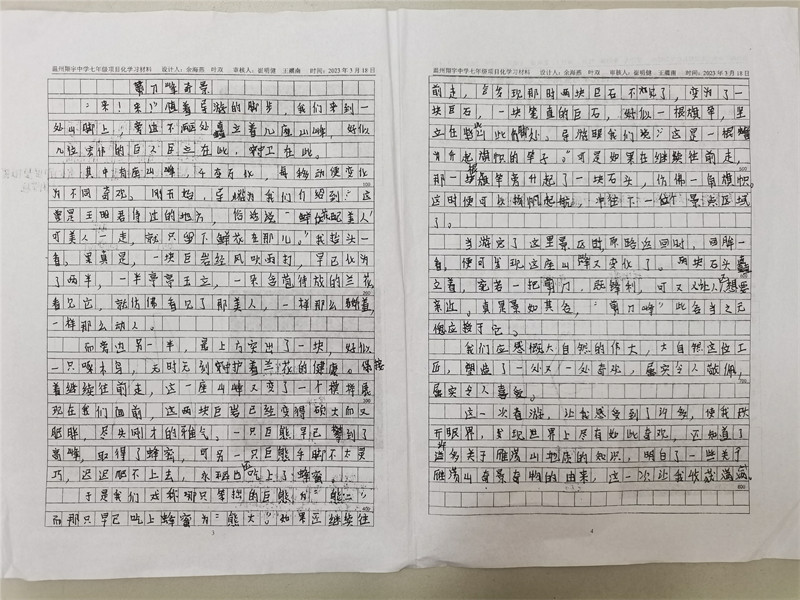 温州翔宇中学七年级项目化学习材料 设计人：余海燕 叶双 审核人：崔明健 王 南 时间：2023年3月18日
剪刀峰奇景
“来！来！”随着导游的脚步，我们来到一
处山脚上，旁边不 处矗立着几座山峰，好似
几位宏伟的巨人巨立在此， 在此。
其中有座山峰，千变万化，具移动便变化
为不同奇观。刚开始，导 为我们介绍到：“这
曾是王昭君待过的地方，俗话说“鲜花配美人”
可美人一走，就只留下鲜花在那儿。”我抬头一
看，果真是，一块巨岩经风吹雨打，早已化为
了两半，一半亭亭玉立，一朵含苞待放的兰花
看见它，就仿佛看见了那美人，一样那么 ，
一样那么动人。
而旁边另一半，最上方突出了一块，好似
一只啄木鸟，无时无刻守护着兰花的健康。
着继续往前走，这一座山峰又变了一个模样展
现在我们面前，这两块巨岩已经变得硕大而又
肥胖，尽失刚才的稚气。一只巨熊早已攀到了
高峰，取得了蜂蜜，可另一只巨熊手脚不太灵
巧，迟迟爬不上去，永 吃上了蜂蜜
于是我们戏称哪只笨拙的巨熊为“熊二”
而那只早已吃上蜂蜜为“熊大”如果还继续往
3
温州翔宇中学七年级项目化学习材料 设计人：余海燕 叶双 审核人：崔明健 王 南 时间：2023年3月18日
前走，会发现那时两块巨石不见了，变为了一
块巨石，一块笔直的巨石，好似一根旗竿，里
立在 山此 处。导游跟我们说：“这是一根
有升起旗帜的竿子。”可是如果在继续往前走，
那一根旗竿旁升起了一块石头，仿佛一角旗帜。
这时便可以扬帆起航，冲往下一个景点区域
了。
当游完了这里景区时原路返回时，回眸一
看，便可发现这座山峰又变化了。两块石头矗
立着，宛若一把剪刀，既锋利，可又让人想要
亲近。真是景如其名，“剪刀峰”此名当之无
愧应 于它。
我们应感慨大自然的伟大，大自然这位工
匠，塑造了一处又一处奇观，属实令人敬佩，
属实令人喜爱。
这一次春游，让我感受到了许多，使我大
开眼界，发现世界上尽有如此奇观，还知道了
许多关于雁荡山地质的知识，明白了一些关于
雁荡山奇景奇物的由来，这一次让我收获满满。
4